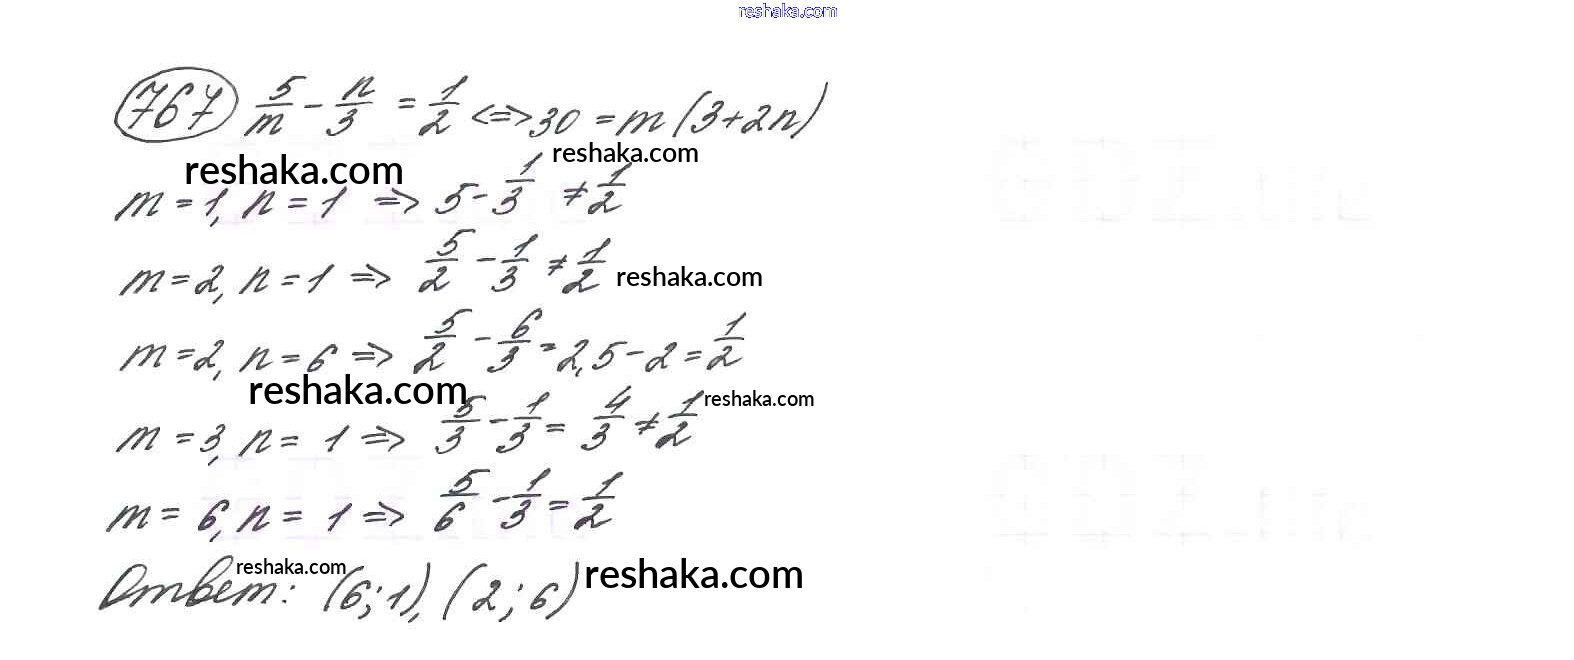 reshaka.com
767 5/m - n/3 = 1/2 <=> 30 = m(3+2n)
reshaka.com reshaka.com
m=1, n=1 => 5 - 1/3 ≠ 1/2
m=2, n=1 => 5/2 - 1/3 ≠ 1/2 reshaka.com
m=2, n=6 => 5/2 - 6/3 = 2,5-2 = 1/2
reshaka.com reshaka.com
m=3, n=1 => 5/3 - 1/3 = 4/3 ≠ 1/2
m=6, n=1 => 5/6 - 1/3 = 1/2
reshaka.com reshaka.com
Ответ: (6;1), (2;6)